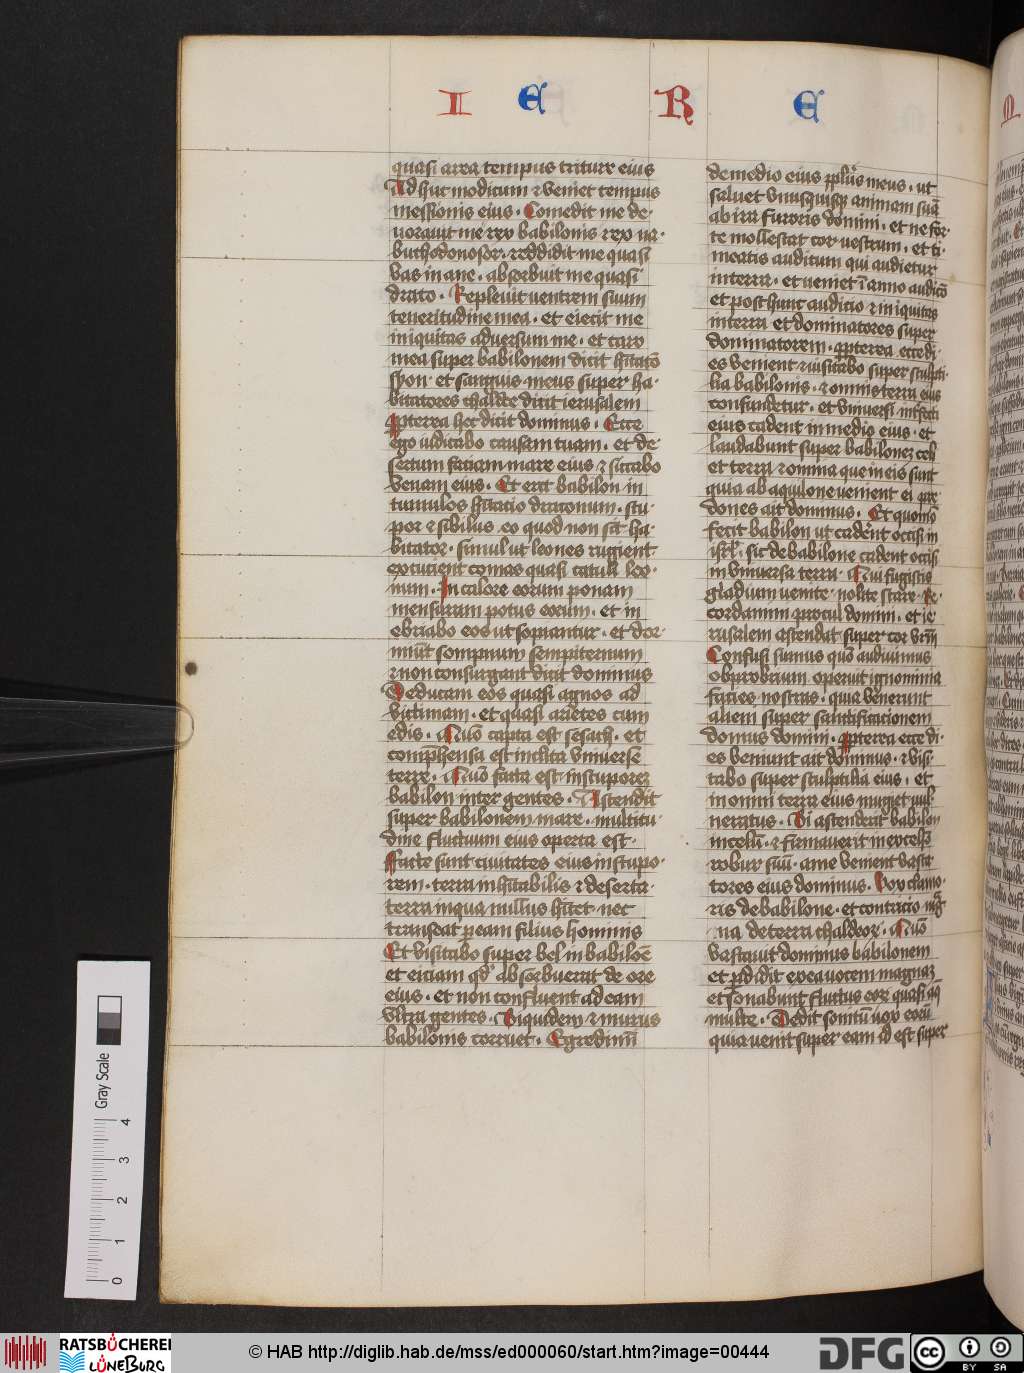 I E R E
quasi area tempus triture eius
Adhuc modicum ⁊ veniet tempus
messionis eius . Comedit me de-
uorauit me rex babilonis rex na-
buchodonosor . reddidit me quasi
vas inane . absorbuit me quasi
draco . Repleuit uentrem suum
teneritudine mea . et eiecit me
iniquitas aduersum me . et caro
mea super babilonem dicit hītatō
syon . et sanguis meus super ha-
bitatores chaldee dicit ierusalem
ꝓpterea hec dicit dominus . Ecce
ego iudicabo causam tuam . et de-
sertum faciam mare eius ⁊ siccabo
venam eius . Et erit babilon in
tumulos hītatio draconum . stu-
por ⁊ sibilus eo quod non sit ha-
bitator . simul ut leones rugient
excutient comas quasi catuli leo-
num . In calore eorum ponam
mensuram potus eorum . et in
ebriabo eos ut sopiantur . et dor-
miāt sompnum sempiternum
⁊ non consurgant dicit dominus
Deducam eos quasi agnos ad
victimam . et quasi arietes cum
edis . Quō capta est sesach . et
comp̄hensa est inclita vniuerse
terre . Quō facta est in stuporem
babilon inter gentes . Ascendit
super babilonem mare . multitu-
dine fluctuum eius operta est .
Facte sunt ciuitates eius in stupo-
rem . terra inhītabilis ⁊ deserta .
terra in qua nullus hītet nec
transeat ꝑ eam filius hominis
Et visitabo super bel in babilōe
et eiciam qd' absorbuerat de ore
eius . et non confluent ad eam
vltra gentes . Siquidem ⁊ murus
babilonis corruet . Egredimī
de medio eius pplūs meus . ut
saluet vnusquisqꝫ animam suā
ab ira furoris domini . et ne for-
te mollescat cor uestrum . et ti-
meatis auditum qui audietur
in terra . et ueniet ī anno auditō
et post hunc auditio ⁊ iniquitas
in terra et dominatores super
dominatorem . ꝓpterea ecce di-
es venient ⁊ visitabo super sculpti-
lia babilonis . ⁊ omnis terra eius
confundetur . et vniuersi inṫfecti
eius cadent in medio eius . et
laudabunt super babilonem celi
et terra ⁊ omnia que in eis sunt
quia ab aquilone uenient ei pre-
dones ait dominus . Et quomō
fecit babilon ut cadent occisi in
isrl' . sic de babilone cadent occisi
in vniuersa terra . Qui fugistis
gladium uenite nolite stare . Re-
cordamini procul domini . et ie-
rusalem ascendat super cor vrm̄
Confusi sumus quō audiuimus
obprobrium operuit ignominia
facies nostras . quia venerunt
alieni super sanctificationem
domus domini . ꝓpterea ecce di-
es veniunt ait dominus . ⁊ visi-
tabo super sculptilia eius . et
in omni terra eius mugiet uul-
neratus . Si ascenderit babilon
in celū . ⁊ firmauerit in excelso
robur suū . a me venient vasta-
tores eius dominus . Vox clamo-
ris de babilone . et contricio mḡ-
na de terra chaldeoꝝ . Quō
vastauit dominus babilonem
et ꝑdidit ex ea uocem magnam
et sonabunt fluctus eoꝝ quasi aq̄
multe . Dedit sonitū uox eorū
quia uenit super eam id est super
Gray Scale
0 1 2 3 4
RATSBÜCHEREI
LÜNEBURG
© HAB http://diglib.hab.de/mss/ed000060/start.htm?image=00444
DFG
cc BY SA